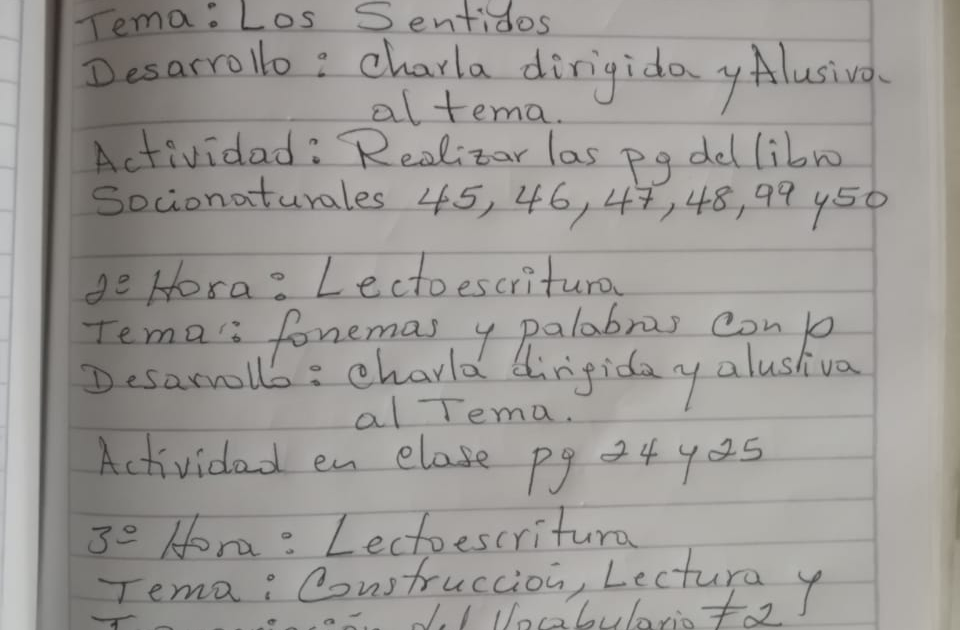 Tema: Los Sentidos
Desarrollo: Charla dirigida y Alusiva
al tema.
Actividad: Realizar las pg del libro
Socionaturales 45, 46, 47, 48, 99 y 50
2º Hora: Lectoescritura
Tema: fonemas y palabras con p
Desarrollo: Charla dirigida y alusiva
al Tema.
Actividad en clase pg 24 y 25
3º Hora: Lectoescritura
Tema: Construcción, Lectura y
del Vocabulario #2